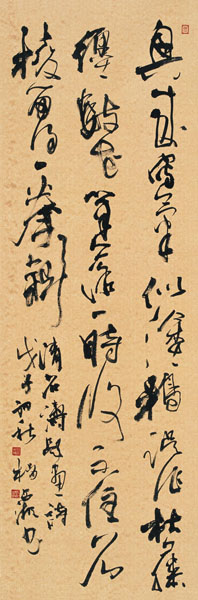 興來寫菊似塗鴉誤作枯藤
纏數花筆落一時收不住石
稜留得一拳斜
清石濤題畫詩
戊子初秋書